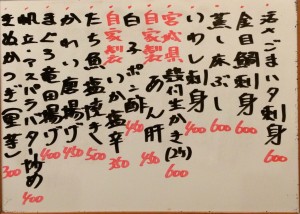 活さごまハタ刺身 600
金目鯛刺身 600
蒸し床ぶし 400
いわし刺身 400
宮城県 殻付生かき(2ケ) 600
自家製 あん肝 450
白子ポン酢 450
自家製 いか塩辛 350
たち魚塩焼き 500
かわい唐揚げ 450
まぐろ竜田揚げ 400
帆立・アスパラバター炒め 400
きぬかつぎ(里芋) 300